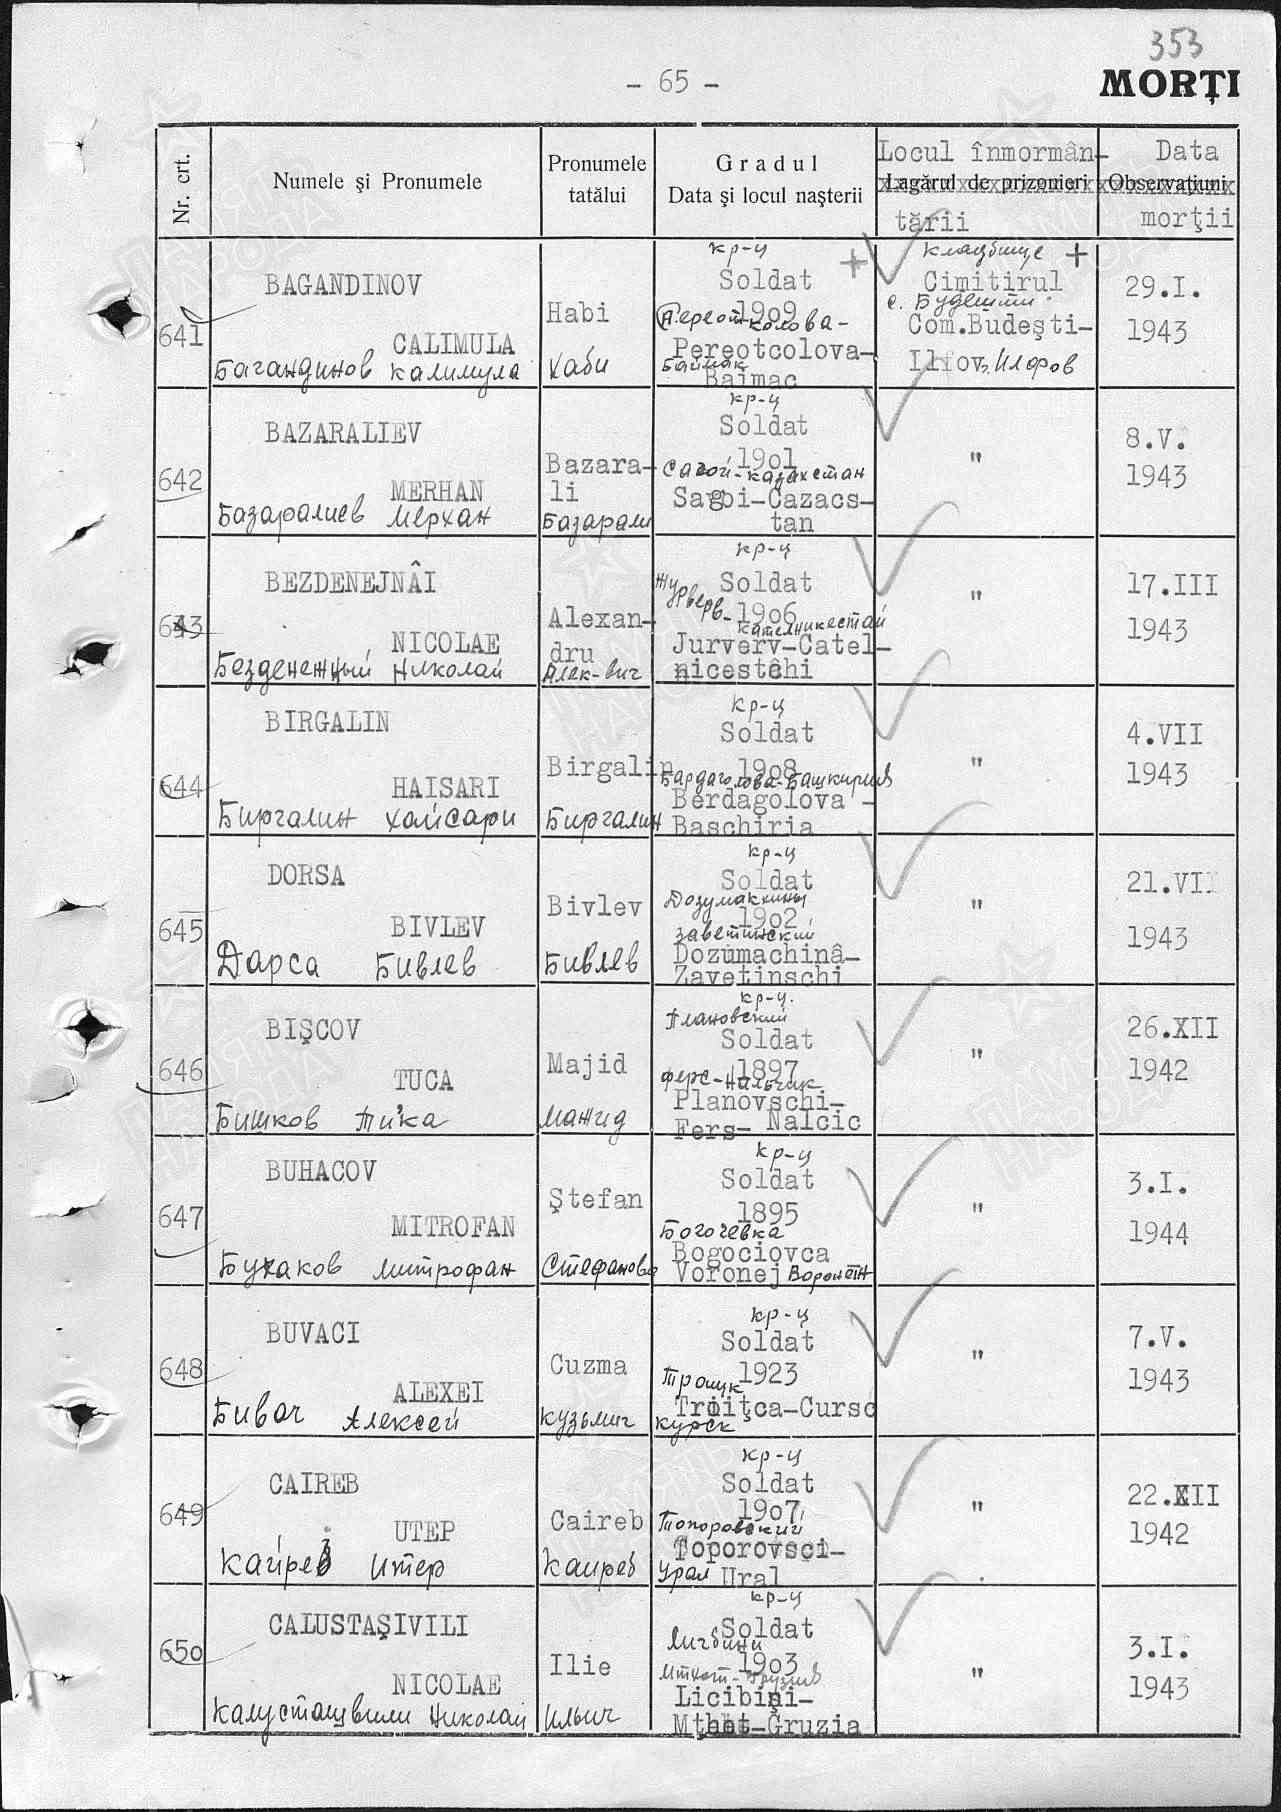 353
- 65 -
MORŢI
Nr. crt.
Numele şi Pronumele
Pronumele tatălui
Gradul
Data şi locul naşterii
Locul înmormân-
Lagărul de prizonieri
tării
Data
Observaţiuni
morţii
641
BAGANDINOV
CALIMULA
Багандинов Калимула
Habi
Хаби
кр-ц
Soldat
1909
Переотколова-
Pereotcolova-
Баймак
Baimac
кладбище
Cimitirul
с. Будешти
Com.Budeşti-
Ilfov г. Илфов
29.I.
1943
642
BAZARALIEV
MERHAN
Базаралиев Мерхан
Bazara-
li
Базарали
кр-ц
Soldat
1901
Сагой-Казахстан
Sagoi-Cazacs-
tan
"
8.V.
1943
643
BEZDENEJNÂI
NICOLAE
Безденежный Николай
Alexan-
dru
Алек-вич
кр-ц
Soldat
Журверв-
1906
Jurverv-Catel-
nicestêhi
"
17.III
1943
644
BIRGALIN
HAISARI
Биргалин Хайсари
Birgalin
Биргалин
кр-ц
Soldat
1908
Бардаголова-Башкирия
Berdagolova -
Baschiria
"
4.VII
1943
645
DORSA
BIVLEV
Дарса Бивлев
Bivlev
Бивлев
кр-ц
Soldat
Дозумакины
1902
заветинский
Dozumachinâ-
Zavetinschi
"
21.VII
1943
646
BIŞCOV
TUCA
Бишков Тука
Majid
Мажид
кр-ц.
Плановский
Soldat
1897
Ферс-Нальчик
Planovschi-
Fers- Nalcic
"
26.XII
1942
647
BUHACOV
MITROFAN
Бухаков Митрофан
Ştefan
Стефанов
кр-ц
Soldat
1895
Богочевка
Bogociovca
Voronej Воронеж
"
3.I.
1944
648
BUVACI
ALEXEI
Бивач Алексей
Cuzma
Кузьмич
кр-ц
Soldat
1923
Troiţca-Cursc
Курск
"
7.V.
1943
649
CAIREB
UTEP
Кайреб Итер
Caireb
Каиреб
кр-ц
Soldat
1907
Топоровский
Toporovsci-
Урал Ural
"
22.XII
1942
650
CALUSTAŞIVILI
NICOLAE
Калусташвили Николай
Ilie
Ильич
кр-ц
Soldat
Личбини
1903
Мтхет-Грузия
Licibini-
Mţhet-Gruzia
"
3.I.
1943